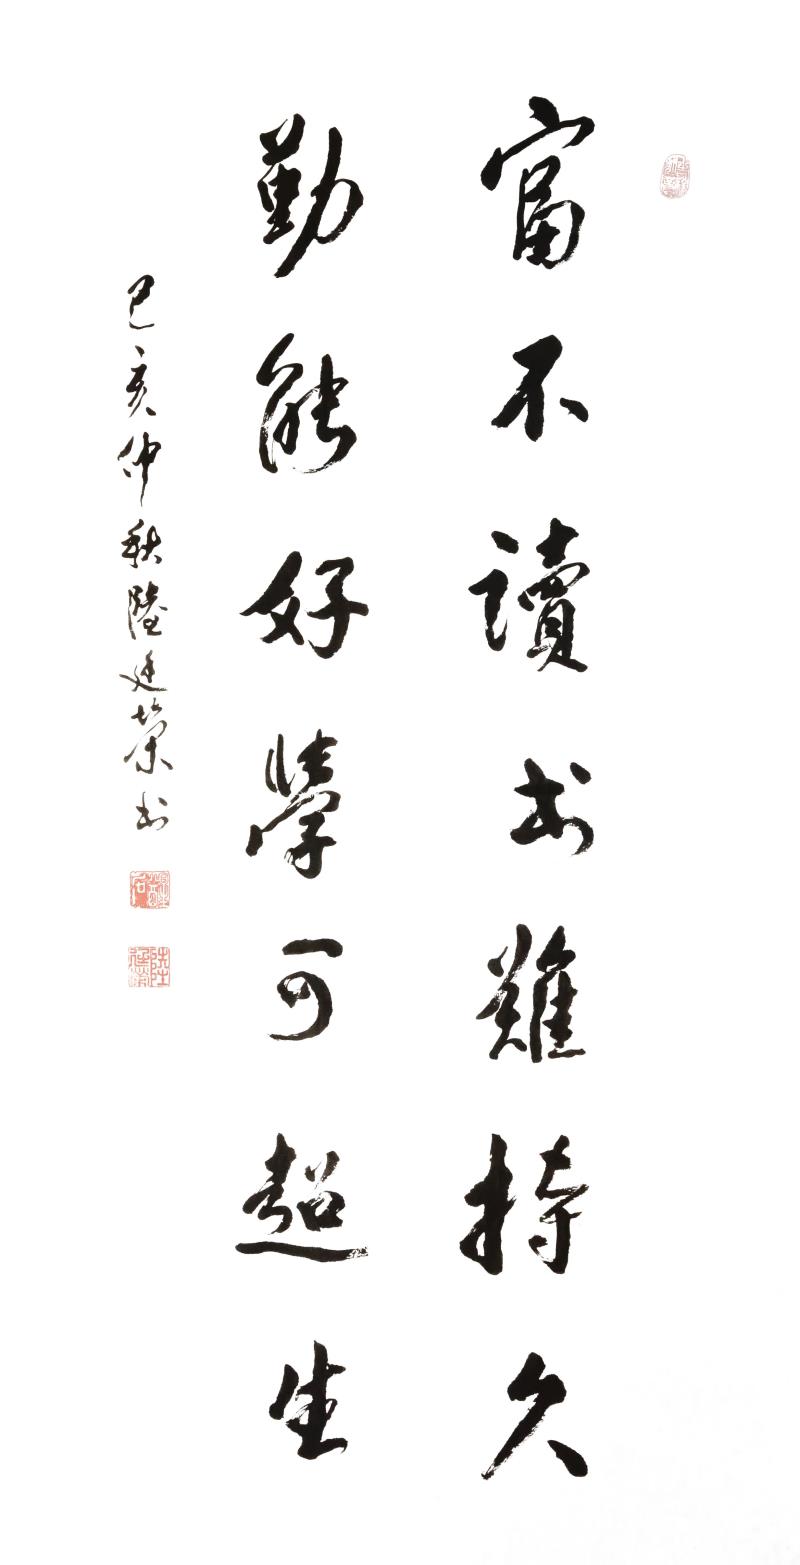 富不讀书難持久
勤能好學可超生
己亥仲秋陸廷榮书